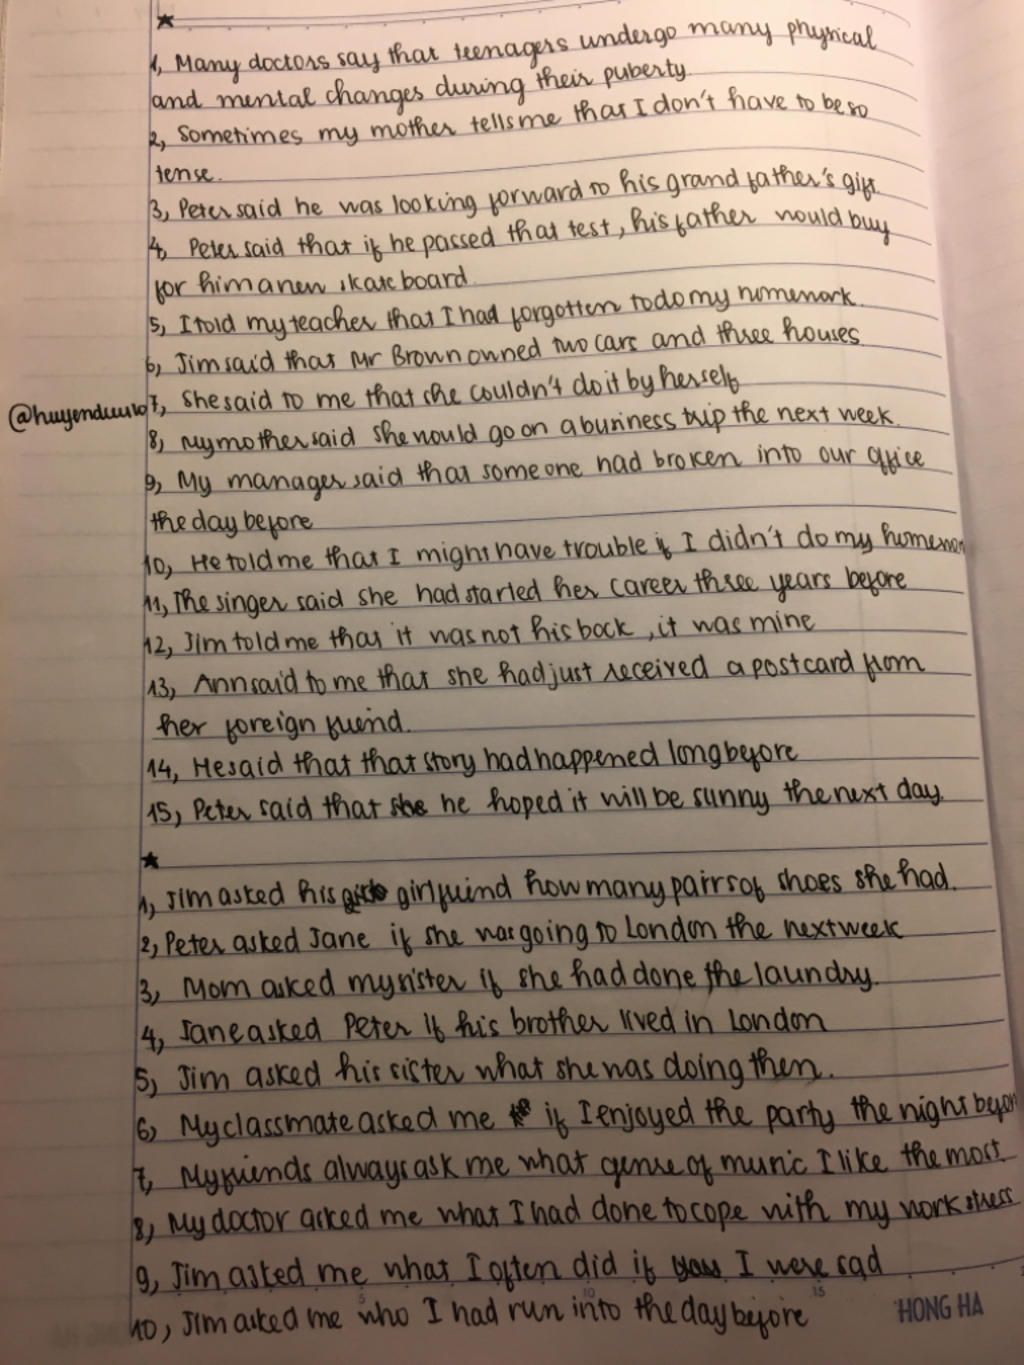 ★
1, Many doctors say that teenagers undergo many physical
and mental changes during their puberty.
2, Sometimes my mother tells me that I don't have to be so
tense.
3, Peter said he was looking forward to his grand father's gift.
4, Peter said that if he passed that test, his father would buy
for him a new skate board.
5, I told my teacher that I had forgotten to do my homework.
6, Jim said that Mr Brown owned two cars and three houses
@huyenduu10 7, She said to me that she couldn't do it by herself
8, My mother said she would go on a business trip the next week.
9, My manager said that some one had broken into our office
the day before
10, He told me that I might have trouble if I didn't do my homewor
11, The singer said she had started her career three years before
12, Jim told me that it was not his bock, it was mine
13, Ann said to me that she had just received a postcard from
her foreign friend.
14, He said that that story had happened long before
15, Peter said that he hoped it will be sunny the next day.
★
1, Jim asked his girlfriend how many pairs of shoes she had.
2, Peter asked Jane if she was going to London the next week
3, Mom asked my sister if she had done the laundry.
4, Jane asked Peter if his brother lived in London
5, Jim asked his sister what she was doing then.
6, My classmate asked me if I enjoyed the party the night befor
7, My friends always ask me what genre of music I like the most
8, My doctor asked me what I had done to cope with my work stress
9, Jim asked me what I often did if I were sad
10, Jim asked me who I had run into the day before
5 10 15 HONG HA